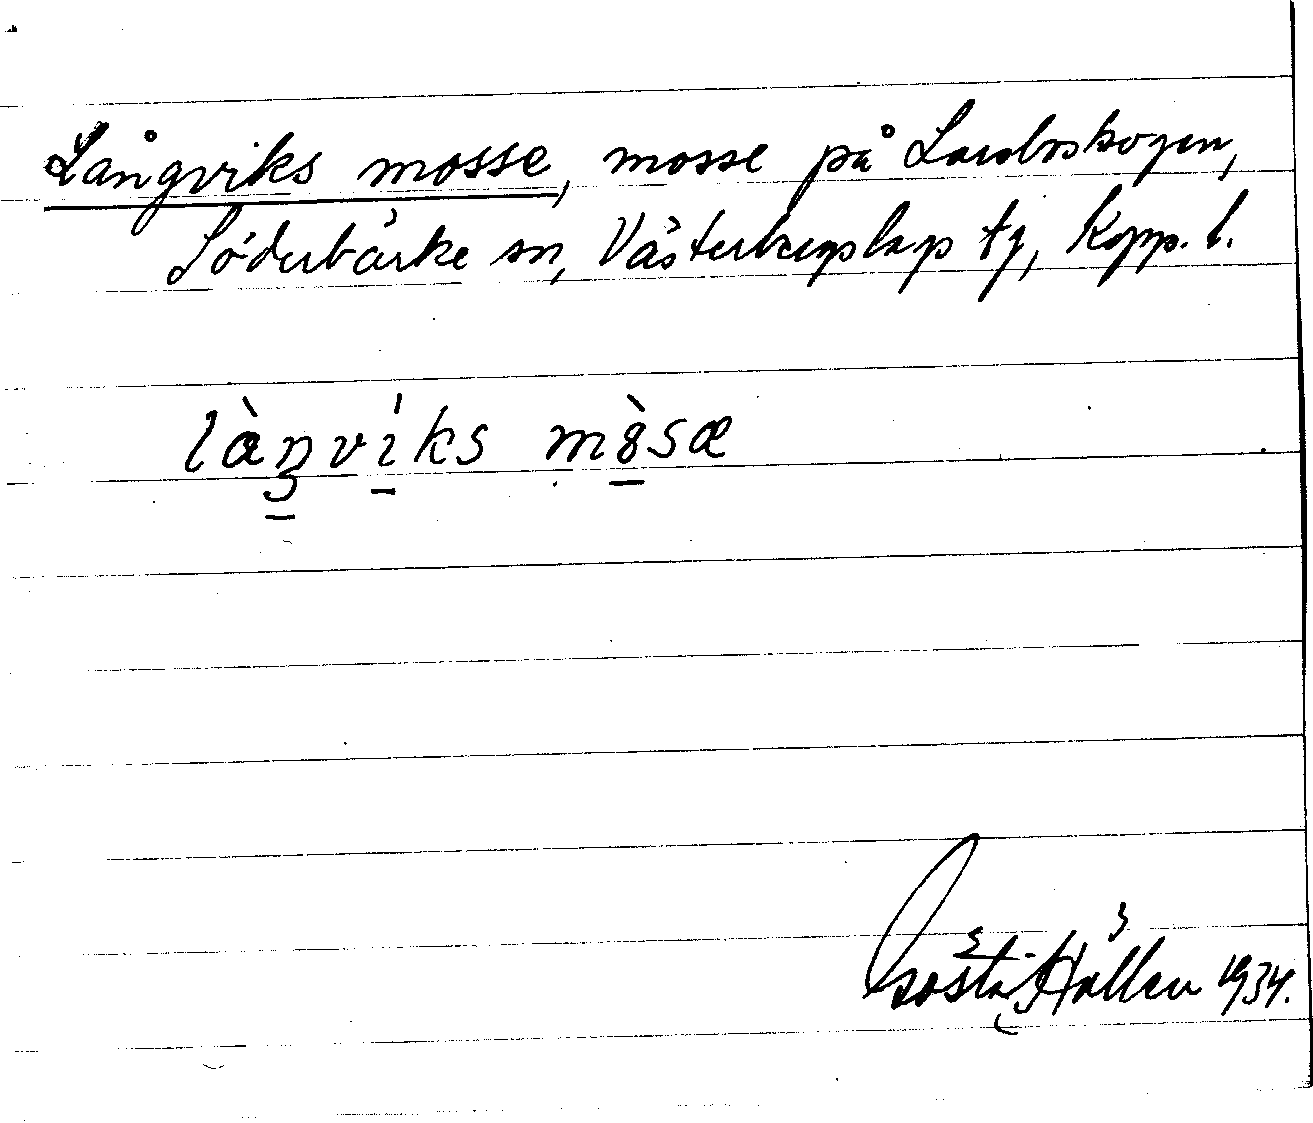 Långviks mosse, mosse på
Söderbärke sn, Västerbergslags tg, Kopp. l.
làŋvíks mòsæ
Gösta Hallén 1934.